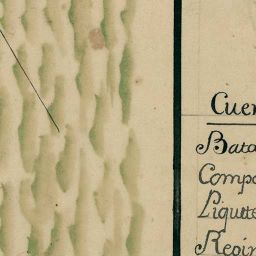 Cuer
Bata
Compa
Piquete
Regim